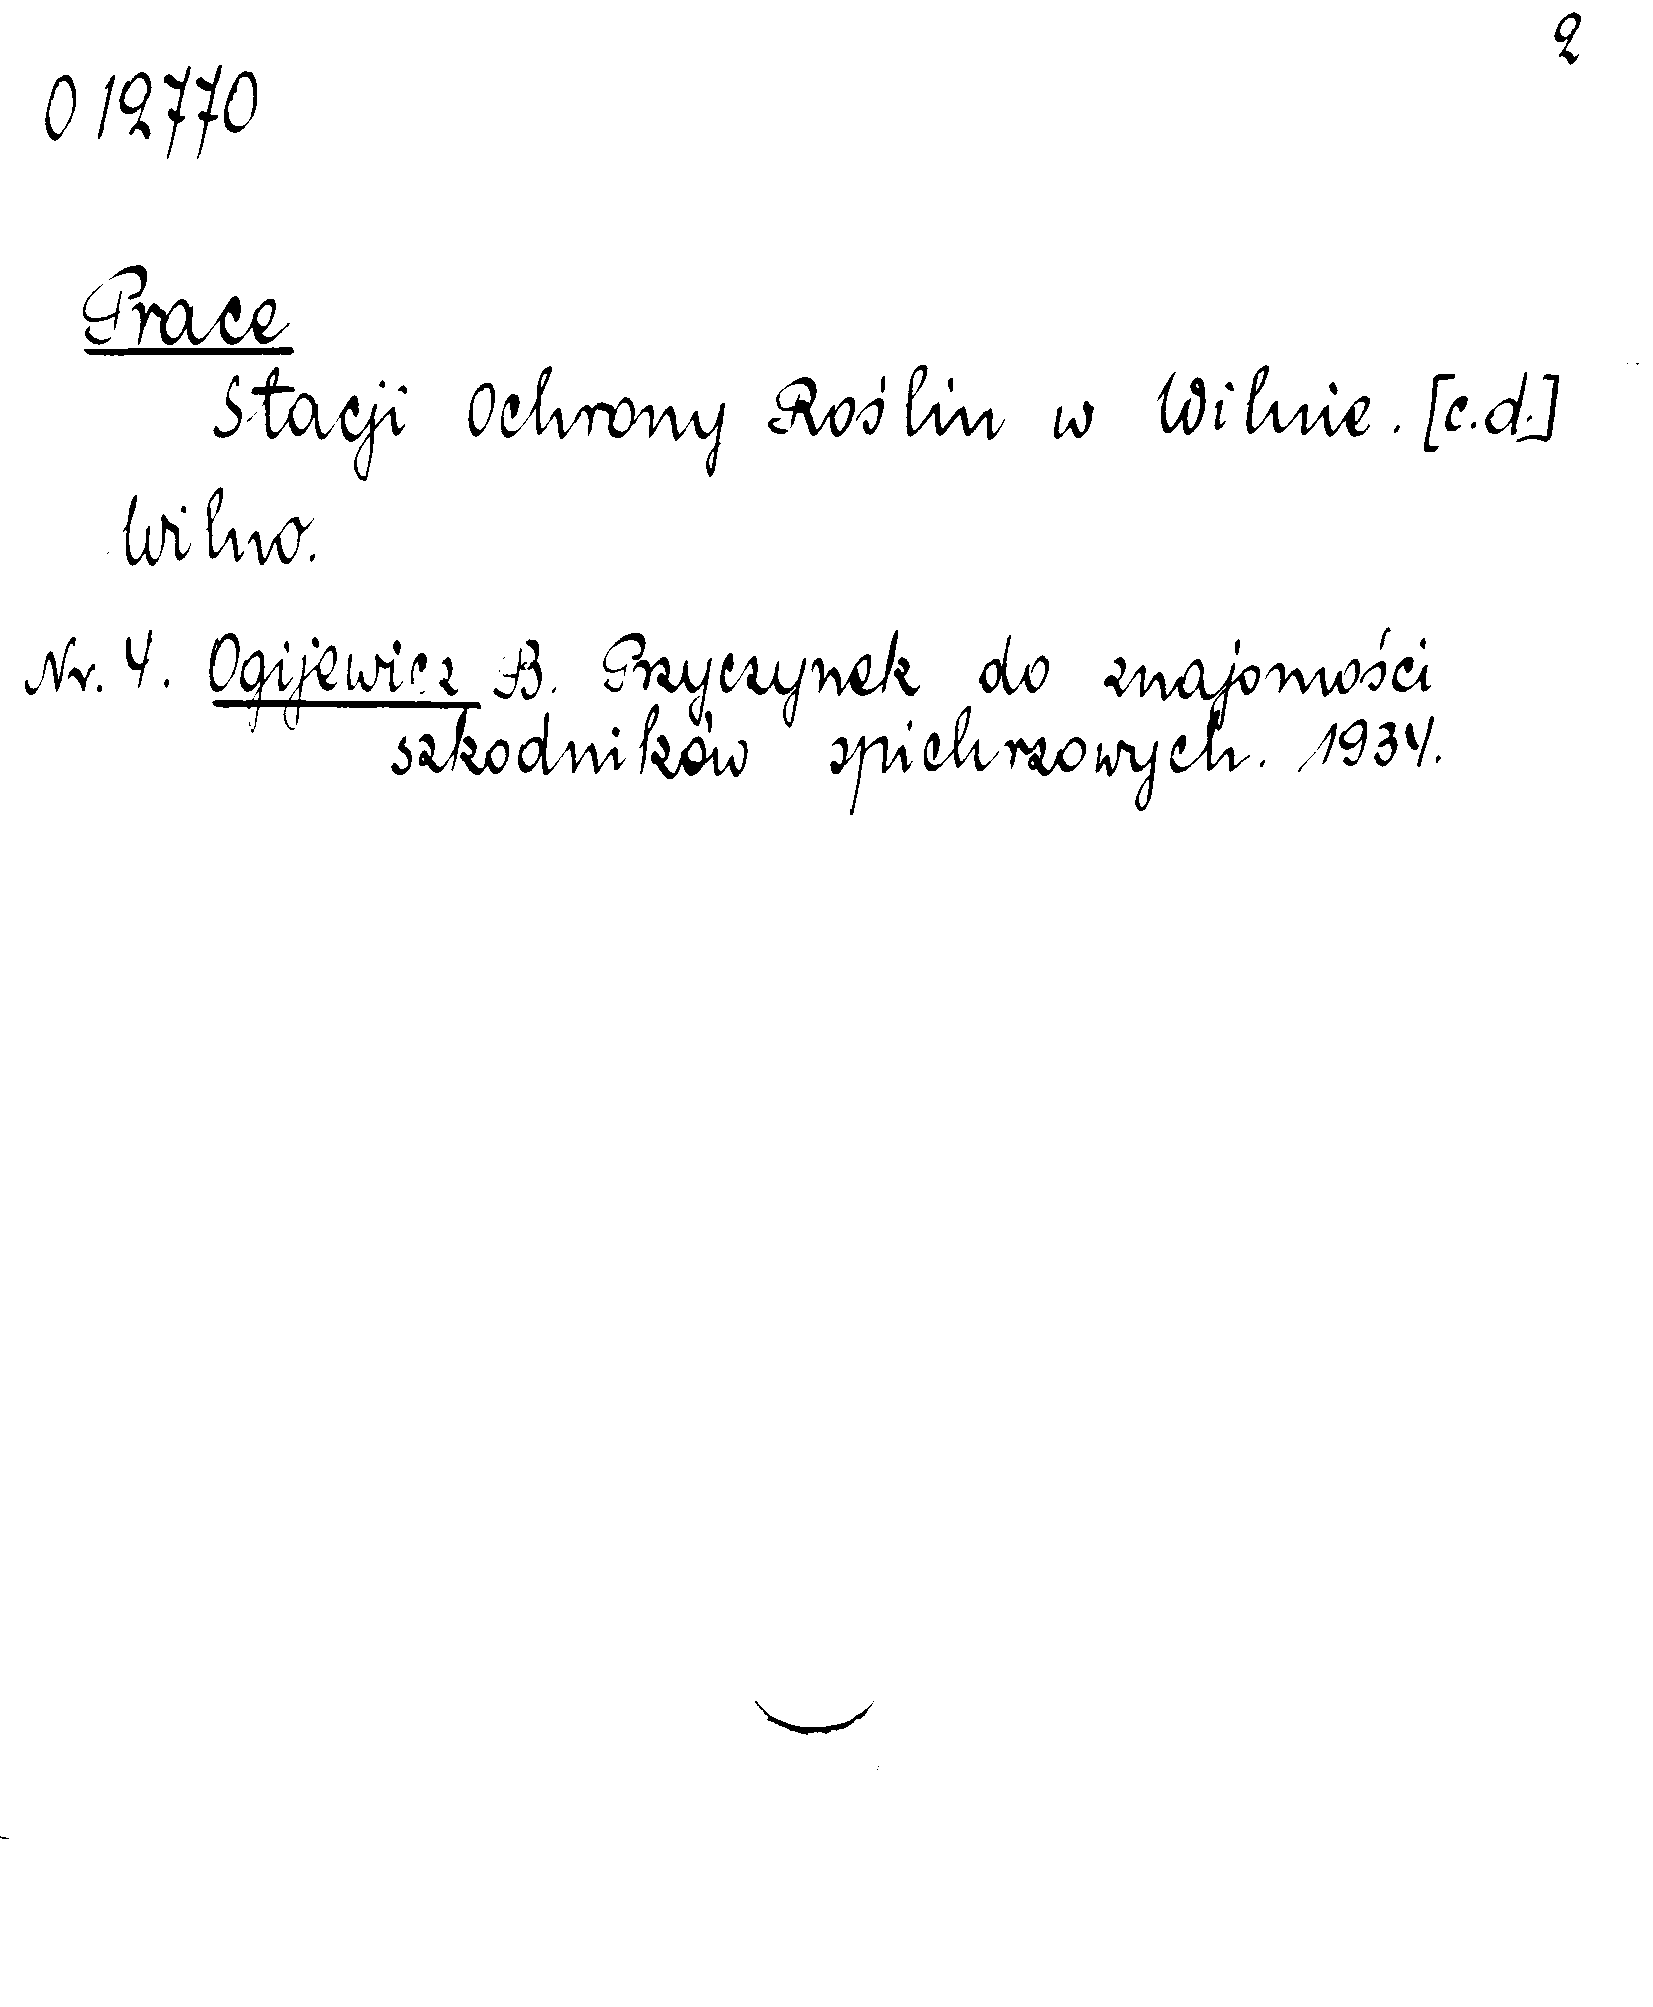 2
0 12770
Prace
Stacji Ochrony Roślin w Wilnie. [c.d.]
Wilno.
Nr. 4. Ogijewicz B. Przyczynek do znajomości
szkodników spichrzowych. 1934.